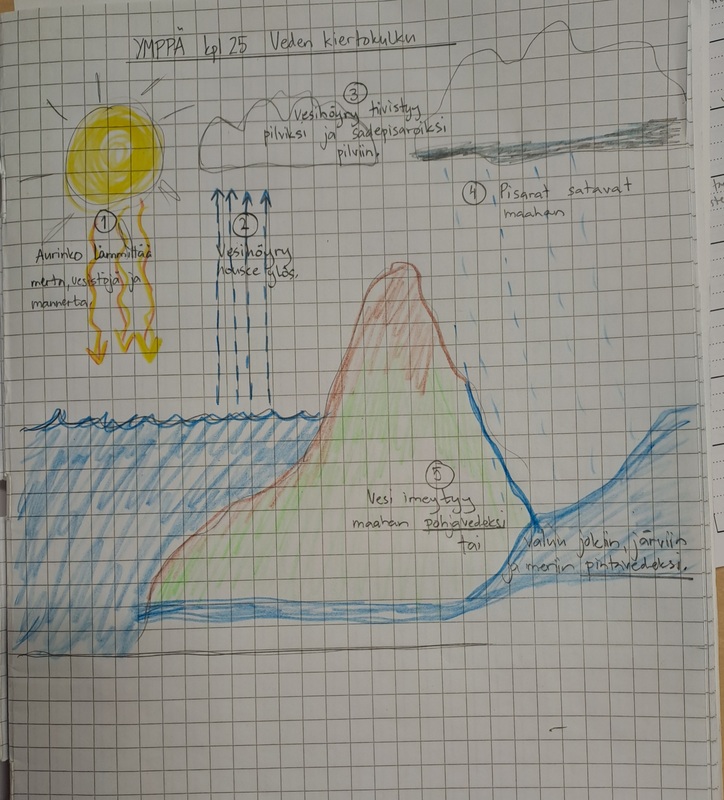 YMPPÄ kpl 25 Veden kiertokulku
1
Aurinko lämmittää
merta, vesistöjä ja
mannerta.
2
Vesihöyry
nousee ylös.
3
Vesihöyry tiivistyy
pilviksi ja sadepisaroiksi
pilviin.
4 Pisarat satavat
maahan
5
Vesi imeytyy
maahan pohjavedeksi
tai
valuu jokiin, järviin
ja meriin pintavedeksi.